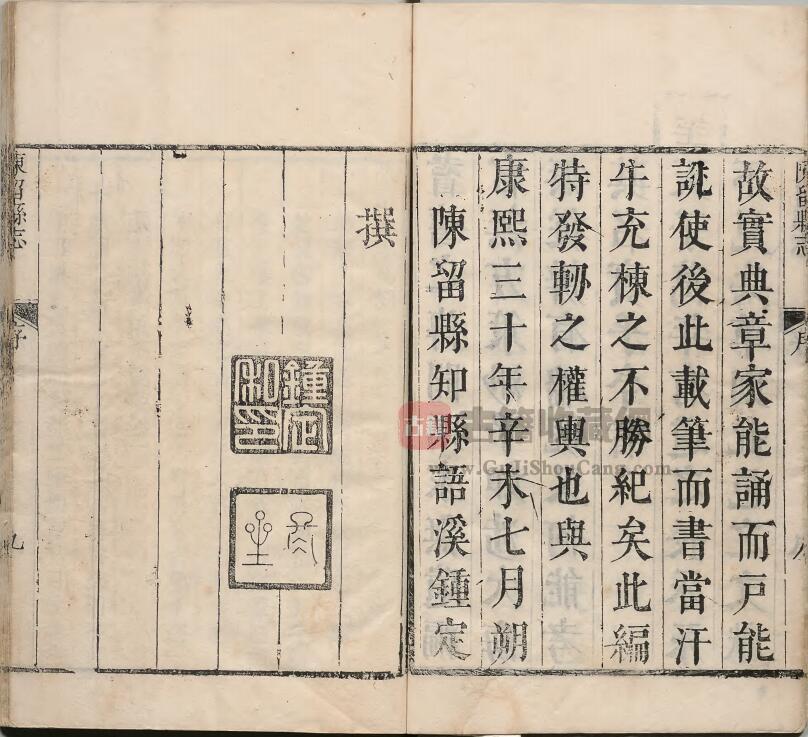 陳留縣志
序
八
故實典章家能誦而戸能
訛使後此載筆而書當汗
牛充棟之不勝紀矣此編
特發軔之權輿也與
康熙三十年辛未七月朔
陳留縣知縣語溪鍾定
撰
鍾定
和印
陳留縣志
序
九
古籍收藏網
www.GuJiShouCang.com